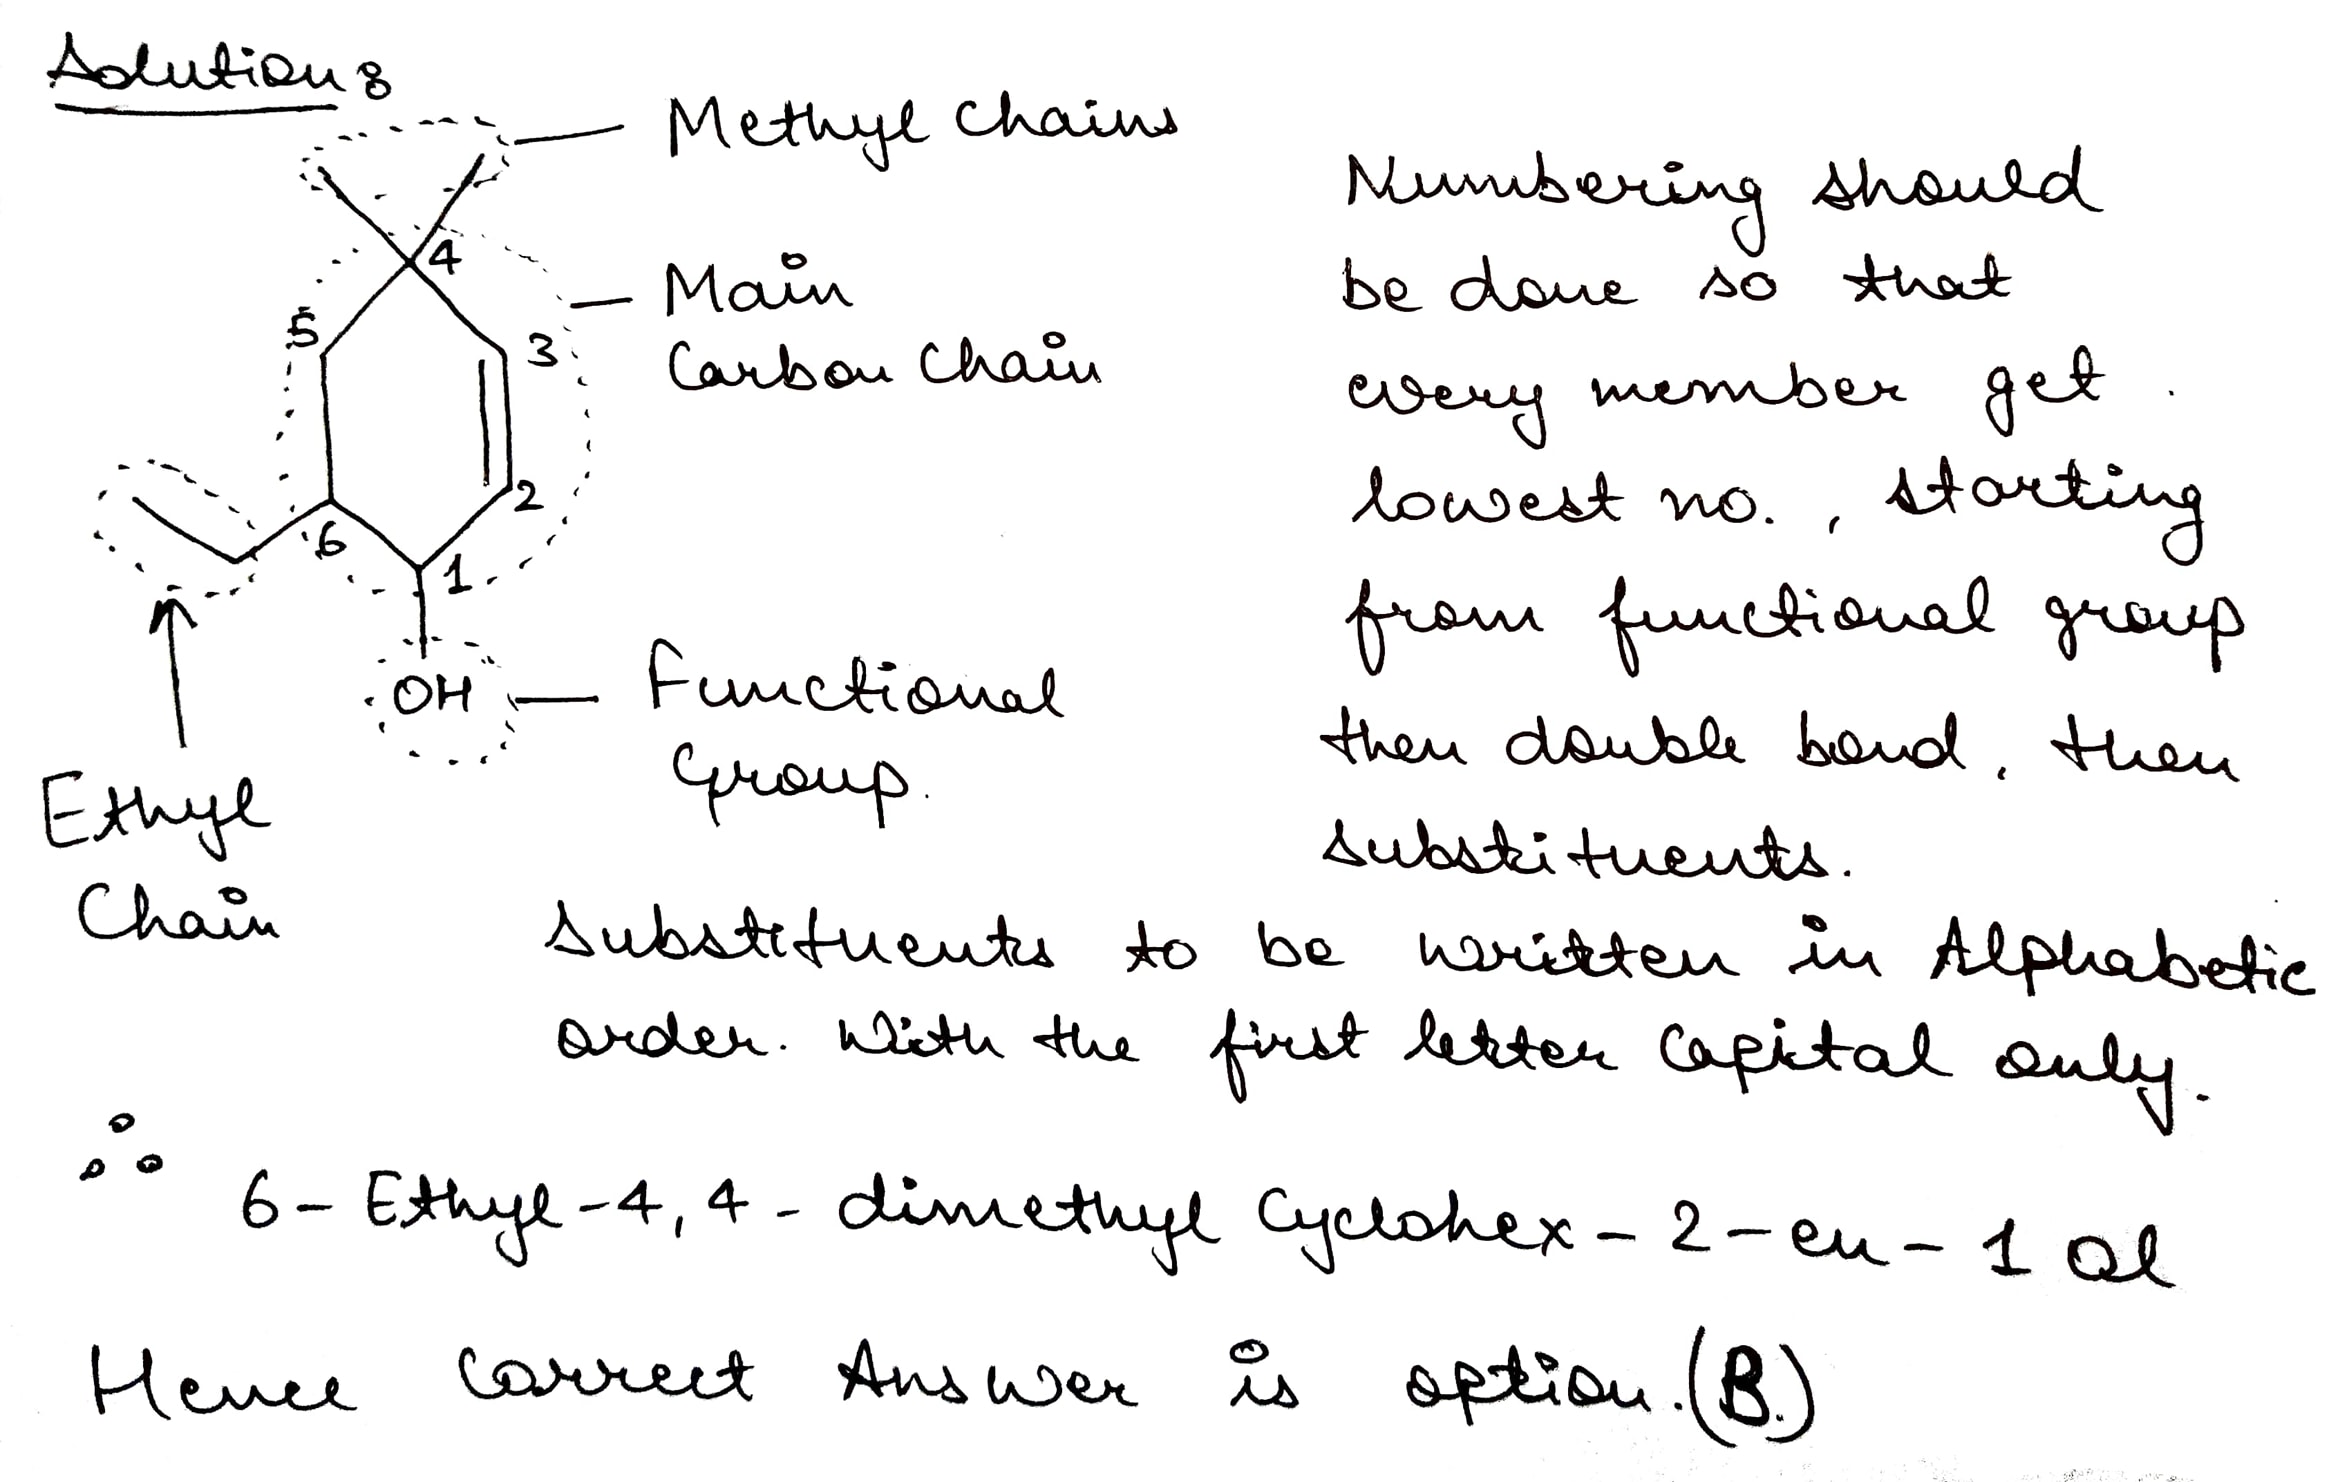 Solution :
Methyl Chains
4
Main
Carbon Chain
5
3
2
6
1
OH
Functional
Group.
Ethyl
Chain
Numbering should
be done so that
every member get
lowest no. , starting
from functional group
then double bond, then
substituents.
Substituents to be written in Alphabetic
order. With the first letter Capital only.
∴ 6 - Ethyl - 4, 4 - dimethyl Cyclohex - 2 - en - 1 ol
Hence Correct Answer is option. (B.)